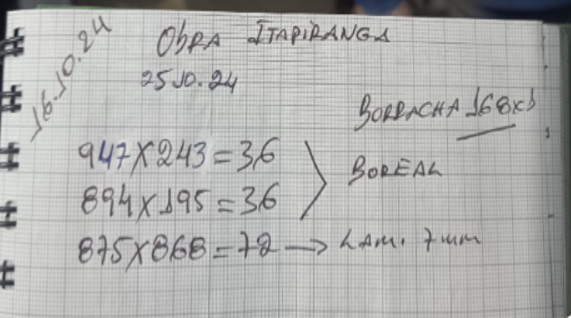 16.10.24
OBRA ITAPIRANGA
25.10.24
BORRACHA 168x1
947X243=36
BOREAL
894X195=36
875X868=72 → LAM. 7mm